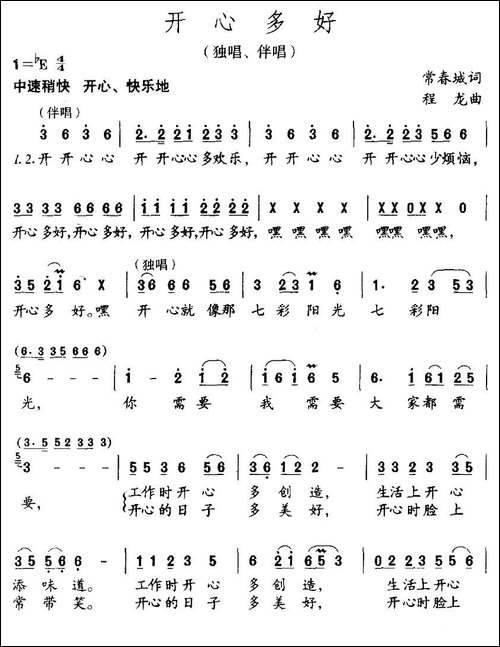 开心多好
（独唱、伴唱）
1=♭E 4/4
中速稍快 开心、快乐地
常春城词
程龙曲
（伴唱）
3 6 3 6 | 2. 2 2 1 2 3 | 3 6 3 6 | 2. 2 2 2 3 5 6 6 |
1.2.开 开 心 心 开 开心心 多欢乐， 开 开 心 心 开 开心心 少烦恼，
3 3 3 3 6 6 6 6 | 1 1 1 1 2 2 2 2 | X X X X | X X 0 X X 0 |
开心多好，开心多好， 开心多好，开心多好， 嘿 嘿 嘿 嘿 嘿嘿 嘿嘿，
（独唱）
3 5 2 1 6 X | 3 6 6 6 5 6 | 3 2 3 1 6 | 1. 2 3 5 3 |
开心 多 好。嘿 开 心 就 像那 七 彩 阳 光 七 彩阳
（6. 3 3 5 6 6 6）
6 - - - | 1 - 2 1 2 | 1 6 1 6 5 | 6. 1 6 1 2 5 |
光， 你 需 要 我 需 要 大 家都 需
（3. 5 5 2 3 3 3）
3 - - - | 5 5 3 6 5 6 | 3 6 1 2 2 - | 2 2 2 3 5 5 6 |
要， 工作时开 心 多 创 造， 生活上开 心
开心的日 子 多 美 好， 开心时脸 上
3 5 5 6 6 - | 1 1 2 3 5 | 6 2 1 3 5 5 - | 0 2 2 3 5 5 6 |
添 味 道。 工作时开 心 多 创 造， 生活上开心
常 带 笑。 开心的日 子 多 美 好， 开心时脸上